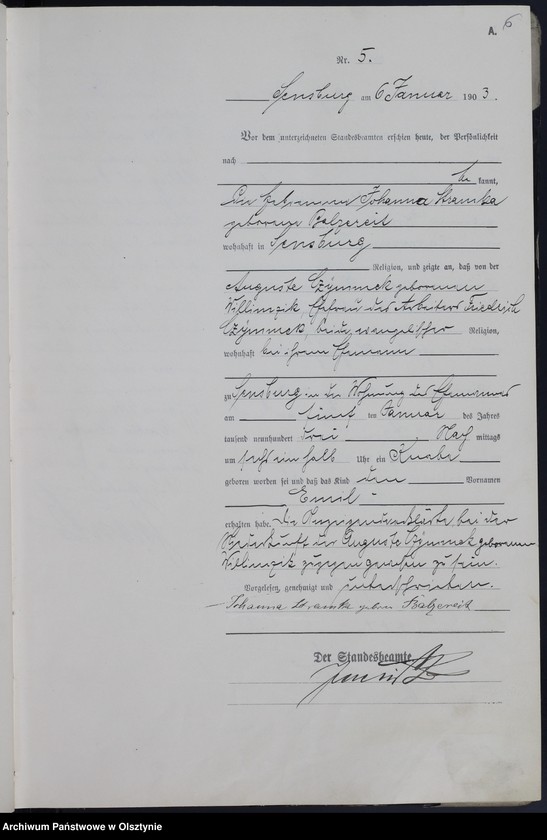 A. 6
Nr. 5.
Sensburg am 6 Januar 1903.
Vor dem unterzeichneten Standesbeamten erschien heute, der Persönlichkeit
nach
be kannt,
die Hebamme Johanna Kramka
geborene Balzereit
wohnhaft in Sensburg
Religion, und zeigte an, daß von der
Auguste Szymmek geborenen
Ehefrau des Arbeiters Friedrich
Szymmek, beide evangelischer Religion,
wohnhaft bei ihrem Ehemann
zu Sensburg in der Wohnung des Ehemannes
am fünf ten Januar des Jahres
tausend neunhundert drei Nach mittags
um sechs ein halb Uhr ein Knabe
geboren worden sei und daß das Kind den Vornamen
Emil
erhalten habe. Die Anzeigende erklärte bei der
Niederkunft der Auguste Szymmek geborenen
zugegen gewesen zu sein.
Vorgelesen, genehmigt und unterschrieben.
Johanna Kramka geboren Balzereit
Der Standesbeamte
Archiwum Państwowe w Olsztynie